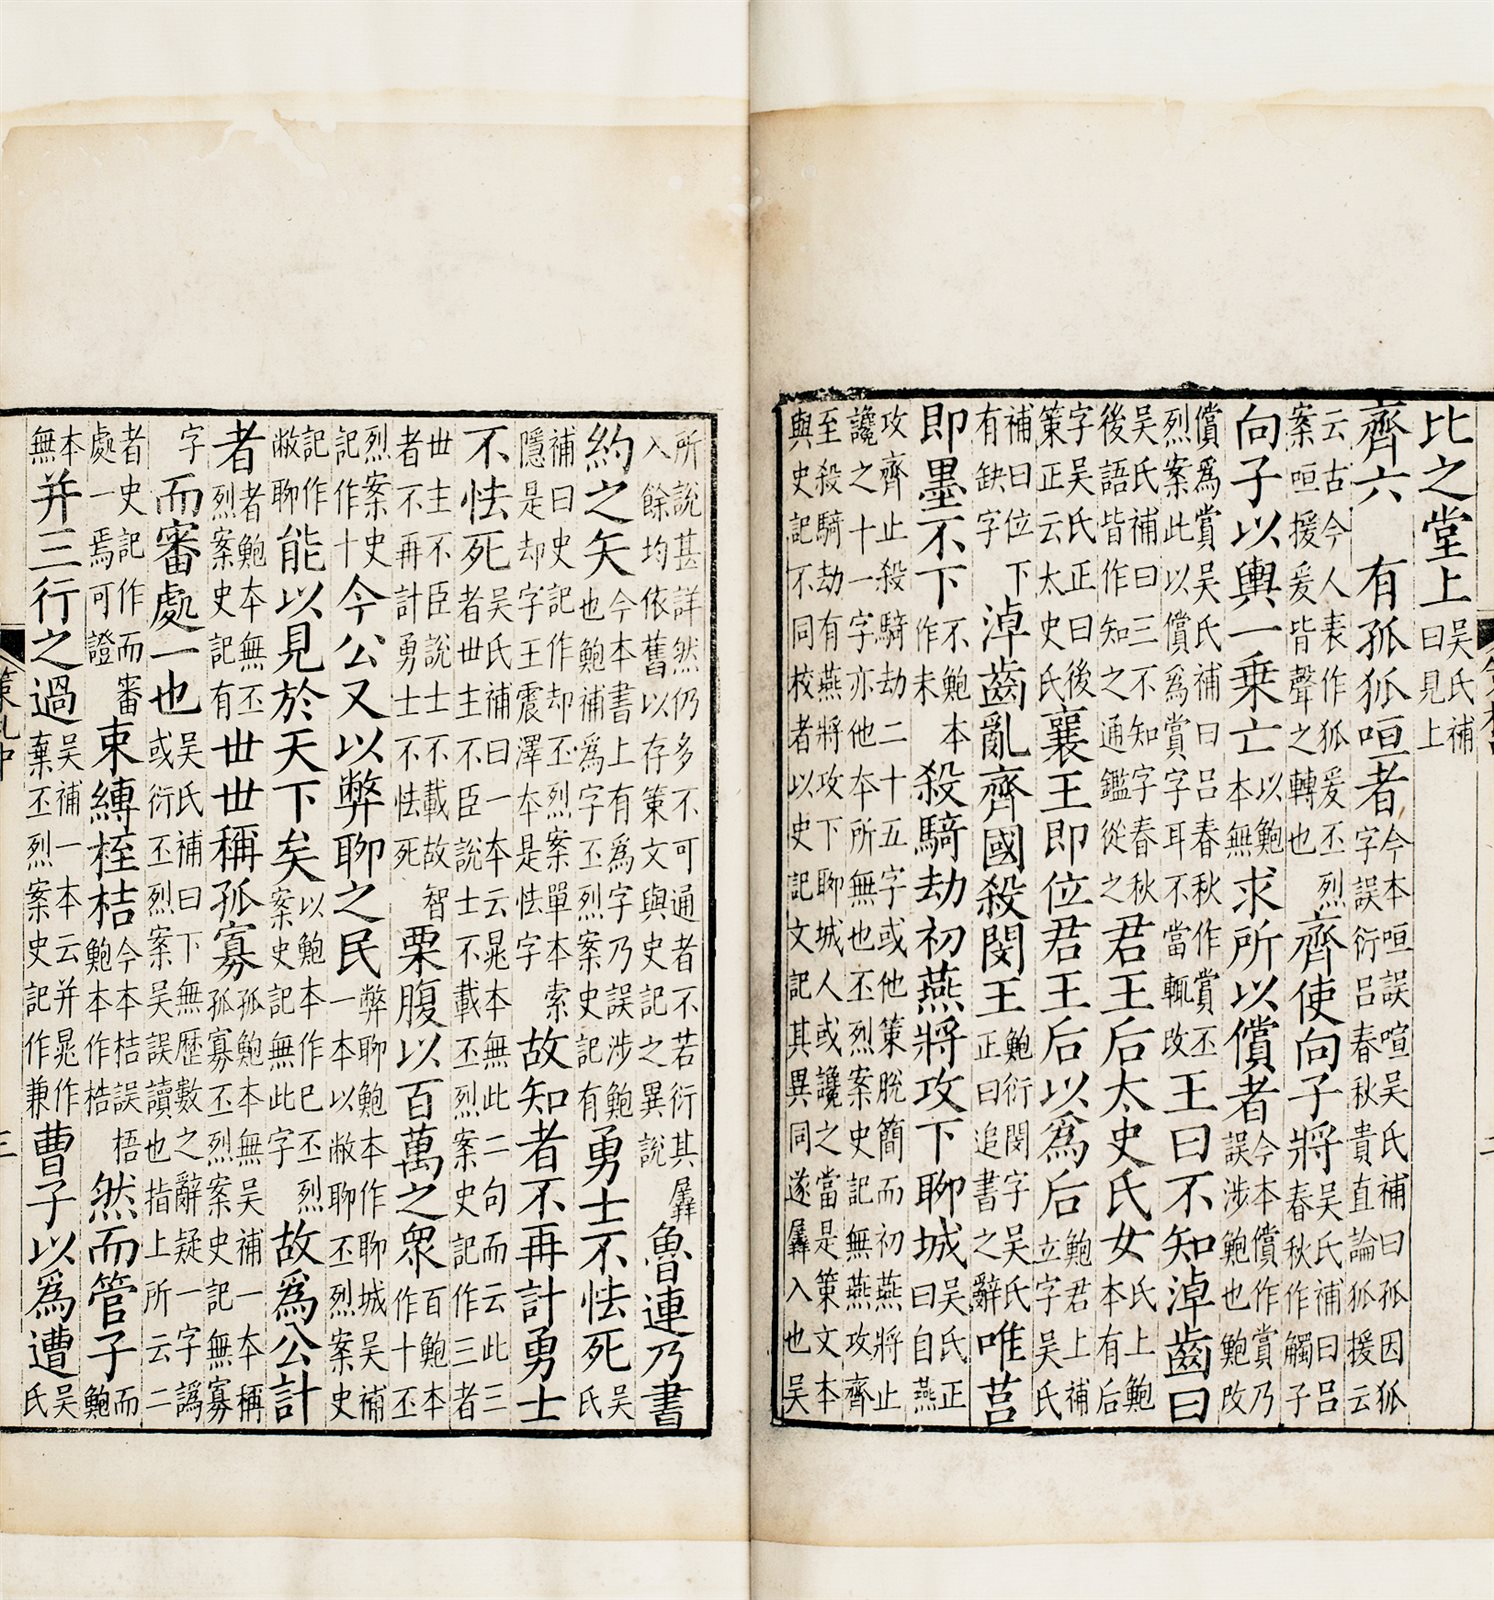 比之堂上吳氏補曰見上
齊六　有孤狐咺者今本咺誤喧吳氏補曰孤因狐字誤衍呂春秋貴直論狐援云
云古今人表作狐爰丕烈案咺援爰皆聲之轉也齊使向子將吳氏補曰呂春秋作觸子
向子以輿一乗亡以鮑本無求所以償者今本償作賞乃誤涉鮑也鮑改
償爲賞吳氏補曰呂春秋作賞丕烈案此以償爲賞字耳不當輒改王曰不知淖齒曰
吳氏補曰三不知字春秋後語皆作知之通鑑從之君王后太史氏女氏上鮑本有后
字吳氏正曰後策正云太史氏襄王即位君王后以爲后鮑君上補立字吳氏
補曰位下有缺字淖齒亂齊國殺閔王鮑衍閔字吳氏正曰追書之辭唯莒
即墨不下不鮑本作未殺騎劫初燕將攻下聊城吳氏正曰自燕
攻齊止殺騎劫二十五字或他策脫簡而初燕將止讒之十一字亦他本所無也丕烈案史記無燕攻齊
至殺騎劫有燕將攻下聊城人或讒之當是策文本與史記不同校者以史記文記其異同遂羼入也吳
所說甚詳然仍多不可通者不若衍其羼入餘均依舊以存策文與史記之異說魯連乃書
約之矢今本書上有爲字乃誤涉鮑也鮑補爲字丕烈案史記有勇士不怯死吳氏
補曰史記作却丕烈案單本索隱是却字王震澤本是怯字故知者不再計勇士
不怯死吳氏補曰一本云晁本無此二句而云此三者世主不臣說士不載丕烈案史記作三者
世主不臣說士不載故智者不再計勇士不怯死栗腹以百萬之眾百鮑本作十丕
烈案史記作十今公又以弊聊之民弊聊鮑本作聊城吳補一本以敝聊丕烈案史
記作敝聊能以見於天下矣以鮑本作已丕烈案史記無此字故爲公計
者者鮑本無丕烈案史記有世世稱孤寡孤鮑本無吳補一本稱孤寡丕烈案史記無寡
字而審處一也吳氏補曰下無歷數之辭疑一字譌或衍丕烈案吳誤讀也指上所云二
者史記作而審處一焉可證束縛桎桔今本桔誤梧鮑本作梏然而管子而鮑
本無并三行之過吳補一本云并晁作棄丕烈案史記作兼曹子以爲遭吳氏